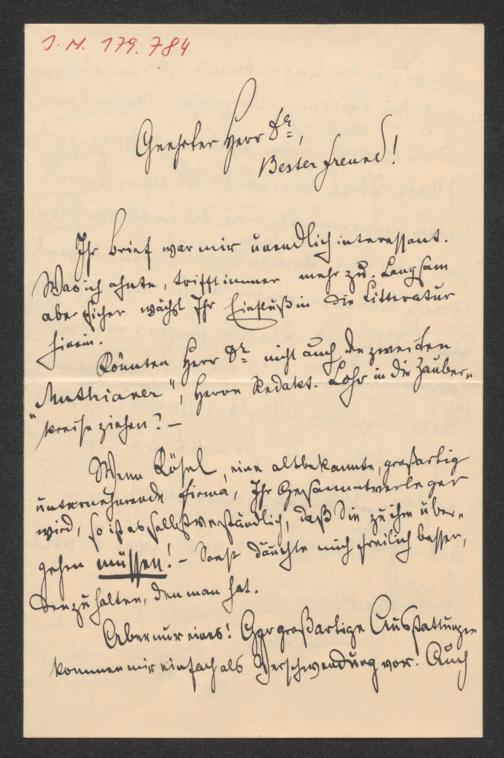 I. N. 179.784
Geehrter Herr Dr.,
Bester Freund!
Ihr Brief war mir unendlich interessant.
Was ich ahnte, trifft immer mehr zu. Langsam
aber sicher wächst Ihr Einfluß in die Litteratur
hinein.
Könnten Herr Dr. nicht auch den zweiten
"Mathianer", Herrn Redakt. Lohr in die Zauber-
kreise ziehen? —
Wenn Kösel, eine altbekannte, großartig
unternehmende Firma, Ihr Gesammtverleger
wird, so ist es selbstverständlich, daß Sie zu ihm über-
gehen müssen! – Sonst däuchte mich freilich besser,
den zu halten, den man hat.
Aber nur eines! Gar großartige Ausstattungen
kommen mir einfach als Verschwendung vor. Auch